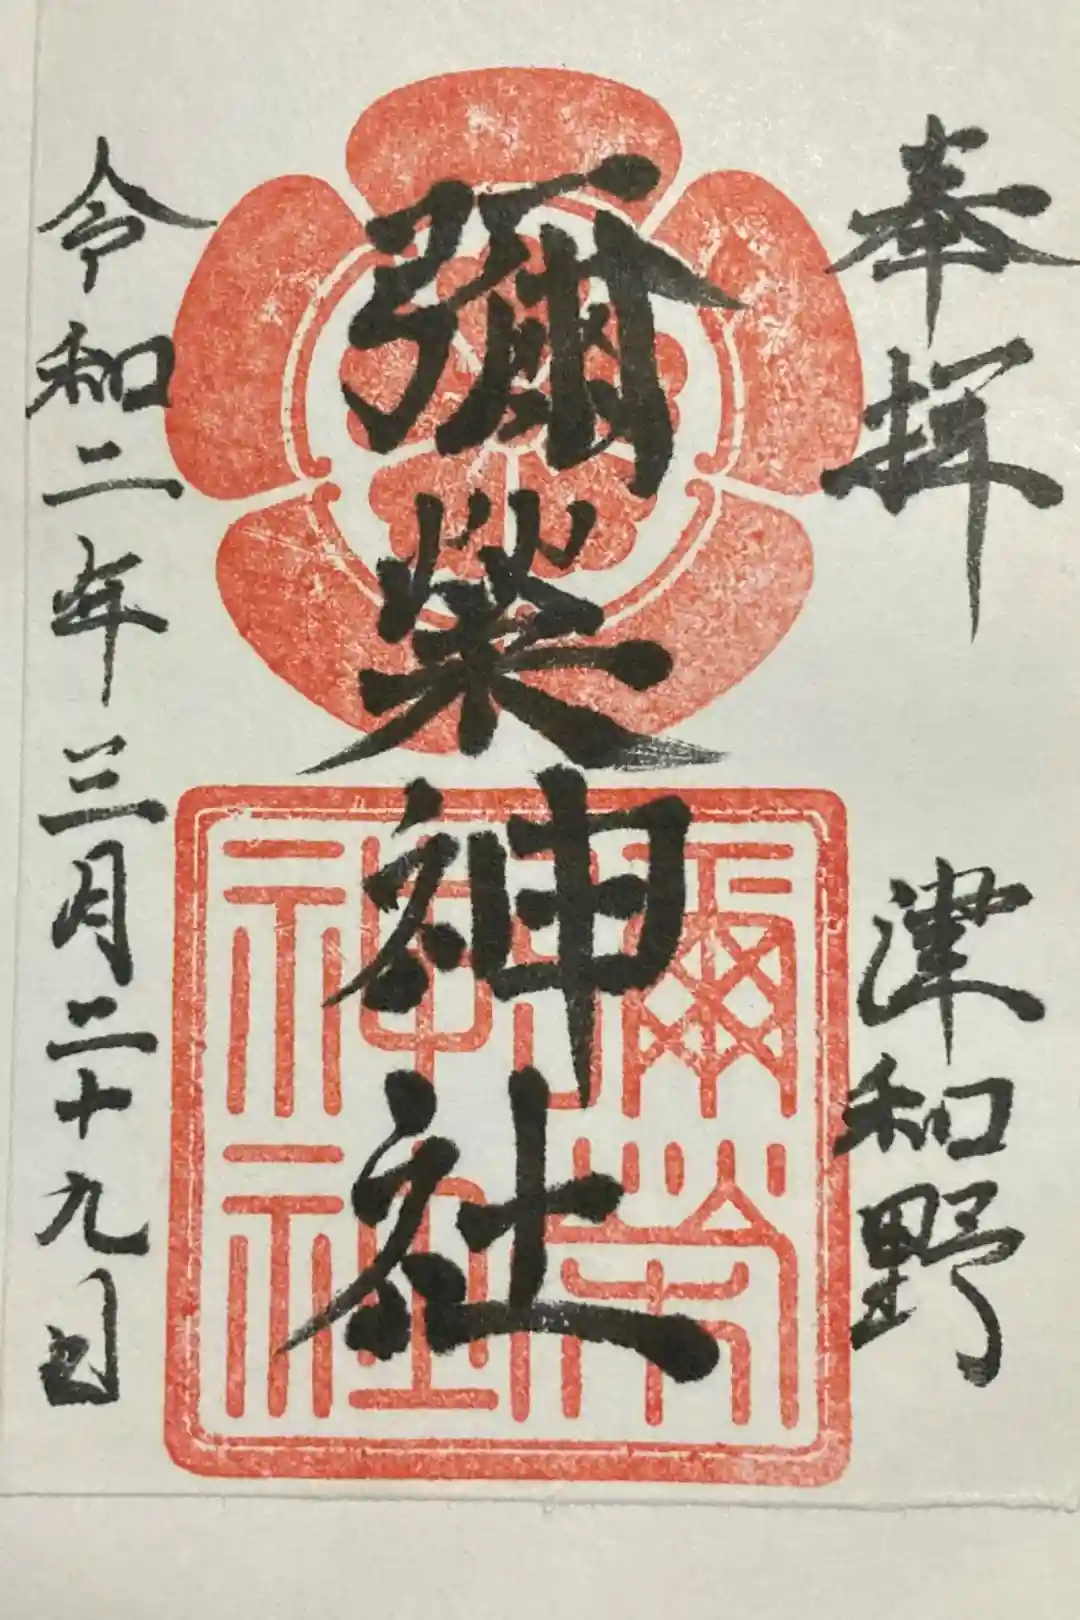 奉拝
津和野
彌榮神社
彌榮神社
令和二年三月二十九日